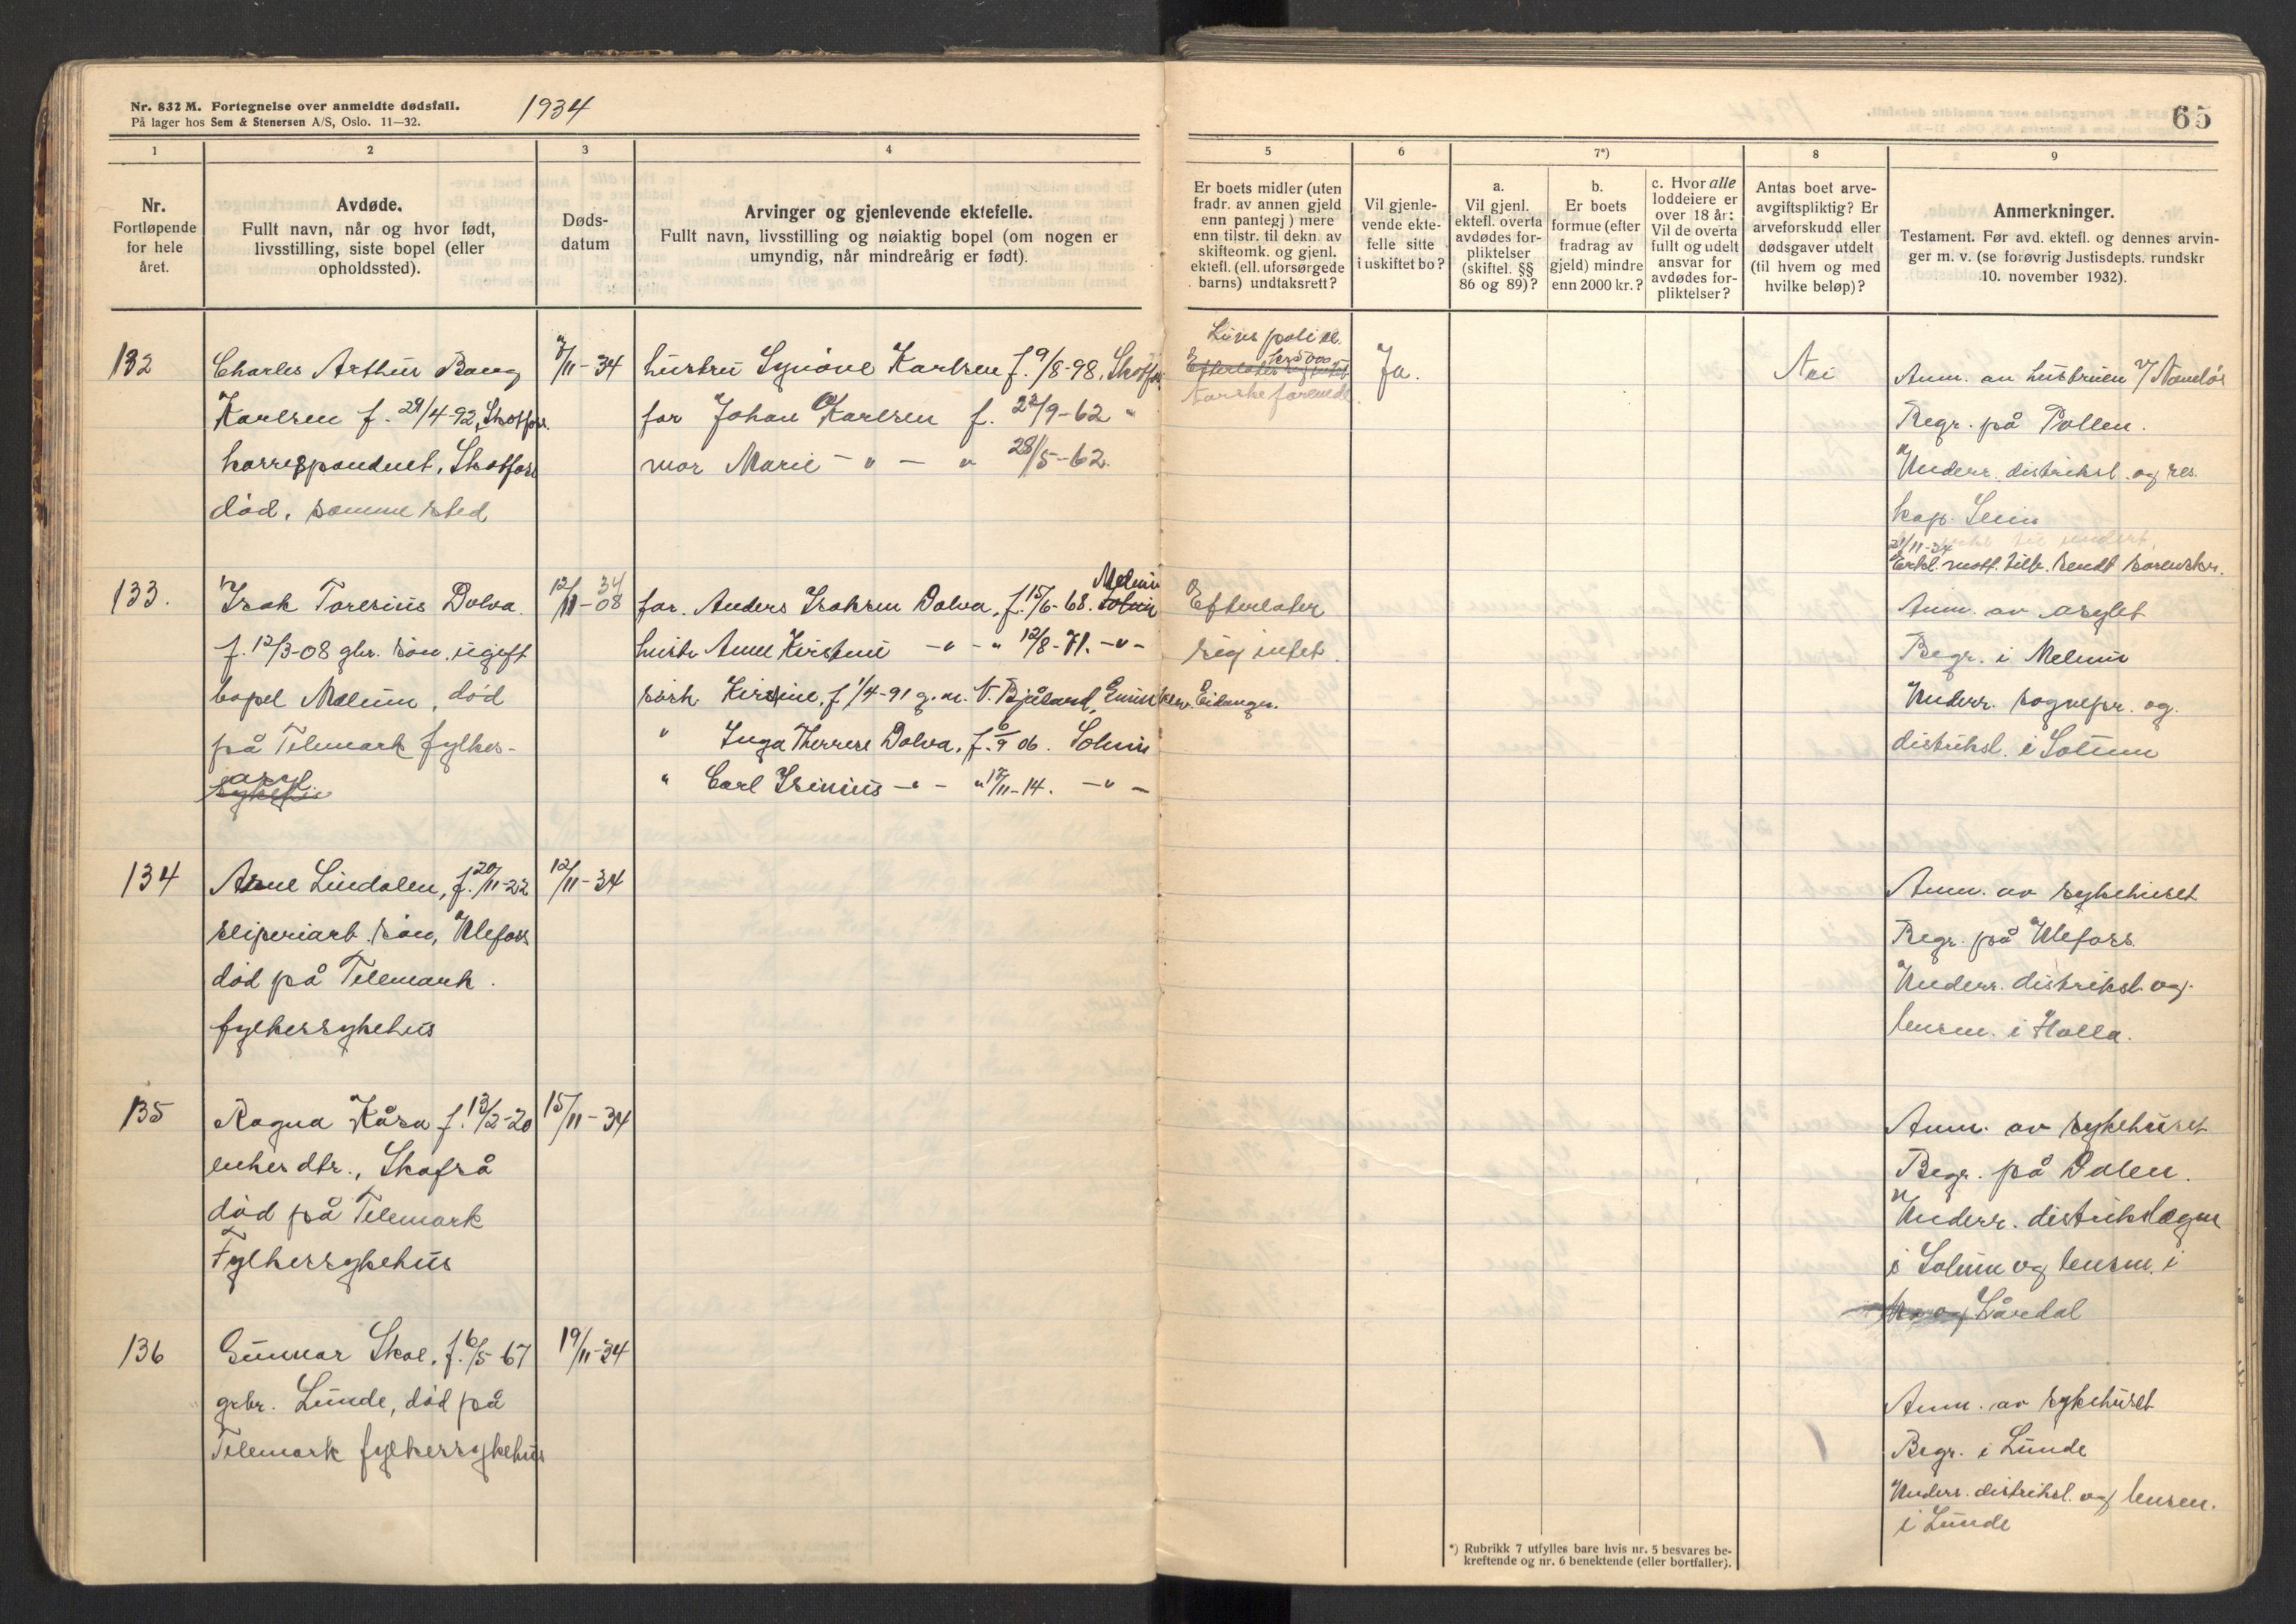 Nr. 832 M. Fortegnelse over anmeldte dødsfall.
På lager hos Sem & Stenersen A/S, Oslo. 11—32.
1934
65
1
2
3
4
5
6
7*)
8
9
Nr.
Fortløpende
for hele
året.
Avdøde.
Fullt navn, når og hvor født,
livsstilling, siste bopel (eller
opholdssted).
Døds-
datum
Arvinger og gjenlevende ektefelle.
Fullt navn, livsstilling og nøiaktig bopel (om nogen er
umyndig, når mindreårig er født).
Er boets midler (uten
fradr. av annen gjeld
enn pantegj) mere
enn tilstr. til dekn. av
skifteomk. og gjenl.
ektef. (ell. uforsørgede
barns) undtaksrett?
Vil gjenle-
vende ekte-
felle sitte
i uskiftet bo?
a.
Vil gjenl.
ektefl. overta
avdødes for-
pliktelser
(skiftel. §§
86 og 89)?
b.
Er boets
formue (efter
fradrag av
gjeld) mindre
enn 2000 kr.?
c. Hvor alle
loddeiere er
over 18 år:
Vil de overta
fullt og udelt
ansvar for
avdødes for-
pliktelser?
Antas boet arve-
avgiftspliktig? Er
arveforskudd eller
dødsgaver utdelt
(til hvem og med
hvilke beløp)?
Anmerkninger.
Testament. Før avd. ektefl. og dennes arvin-
ger m. v. (se forøvrig Justisdepts. rundskr
10. november 1932).
132
Charles Arthur Bang
Karlsen f. 29/4-92, Skotfoss
korrespondent, Skotfoss
død, samme sted
/11-34
hustru Synøve Karlsen f. 9/8-98, Skotfoss
far Johan Karlsen f. 22/9-62 "
mor Marie - " - " 28/5-62.
Livs poli
kr 5000
Efterlater sig intet
Ja.
Nei
Anm. av hustruen
Begr. på Pollen.
Underr. distriksl. og res.
kap.
21/11-34
Erkl. mott. tilb. sendt sorenskr.
133.
Isak Toresius Dolva.
f. 12/3-08 gbr. søn, ugift
bopel Melum, død
på Telemark fylkes-
asyl
34
12/11-08
Melum
far. Anders Isaksen Dolva, f. 15/6-68. Solum
hustr Anne Kirstine - " - " 12/8-71. - " -
søsk Kirstine, f 1/4-91 g. m. N. Bjåland, Eidanger.
" Inga Therese Dolva, f. 6/9 06. Solum
" Carl Isinius - " - " 17/11-14. - " -
Efterlater
sig intet.
Anm. av asylet
Begr. i Melum
Underr. sognepr. og
distriksl. i Solum
134
Arne Lindalen, f. 20/11-22
sliperiarb. søn, Ulefoss
død på Telemark.
fylkessykehus
12/11-34
Anm. av sykehuset
Begr. på Ulefoss
Underr. distriksl. og
lensm. i Holla.
135
Ragna Kåsa f. 13/2-20
enkes dtr., Skafså
død på Telemark
Fylkessykehus
15/11-34
Anm. av sykehuset
Begr. på Dalen.
Underr. distrikslægen
i Solum og lensm. i
Lårdal
136
Gunnar Skoe, f. 6/5 67
grbr. Lunde, død på
Telemark fylkessykehus
19/11-34
Anm. av sykehuset
Begr. i Lunde
Underr. distriksl. og lensm.
i Lunde
*) Rubrikk 7 utfylles bare hvis nr. 5 besvares be-
kreftende og nr. 6 benektende (eller bortfaller).